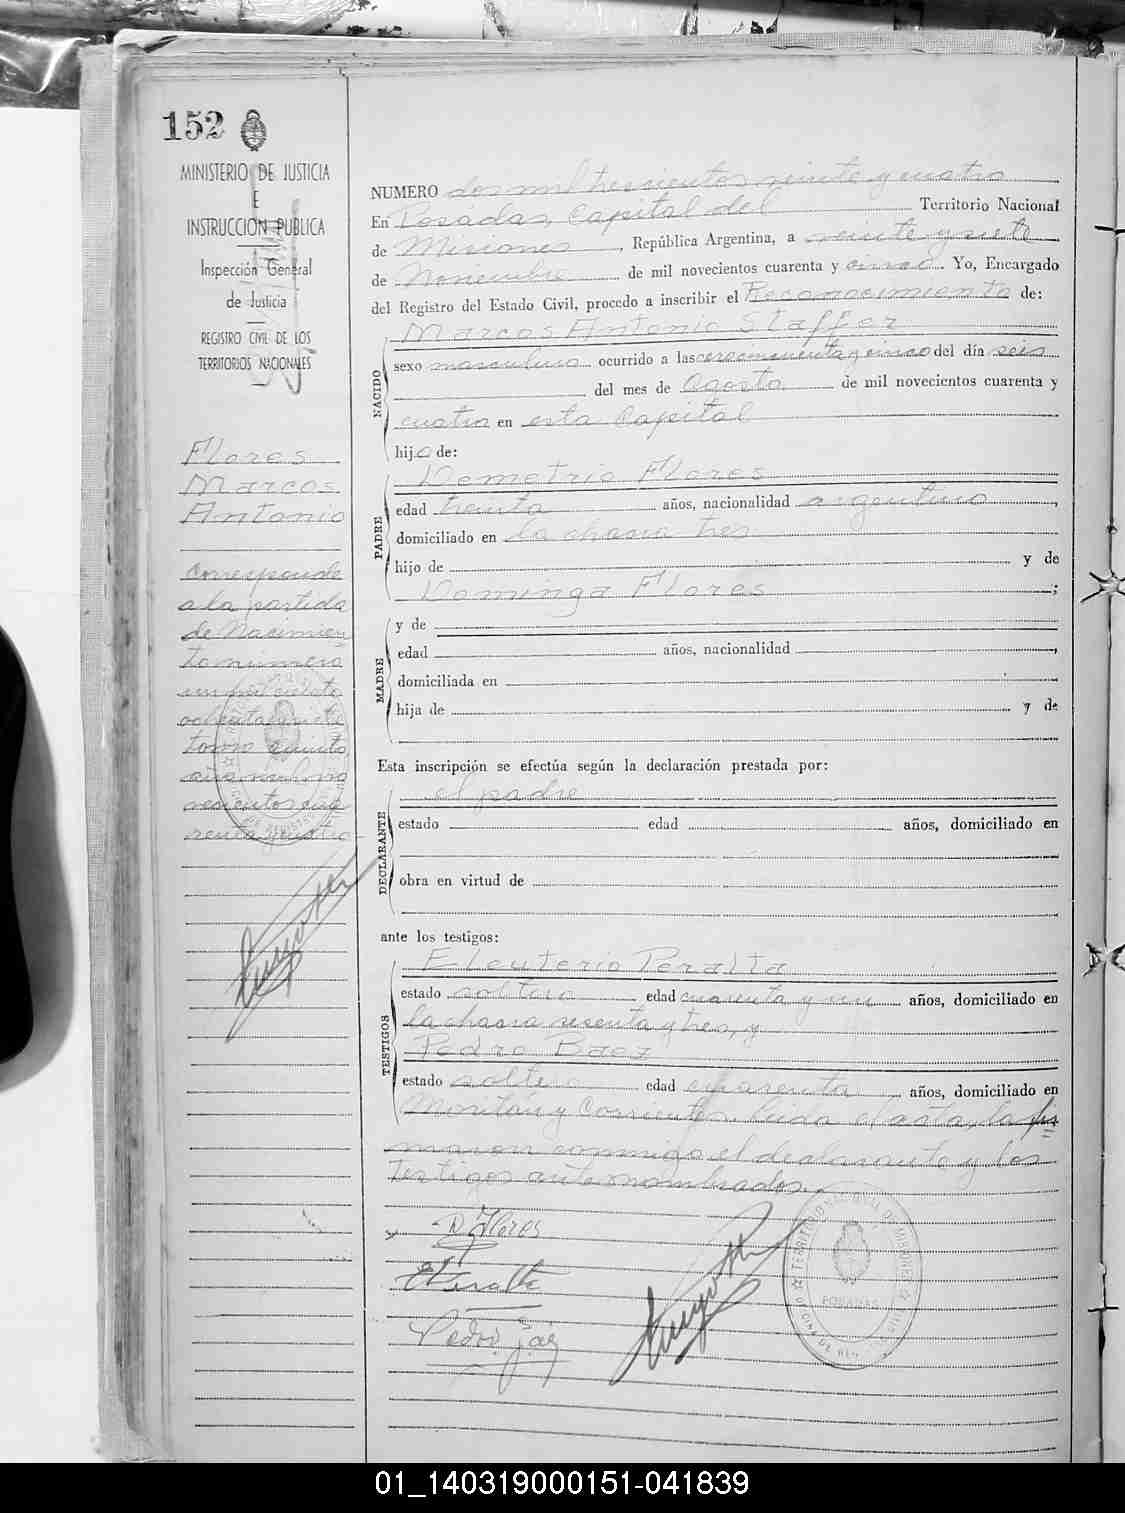 152
MINISTERIO DE JUSTICIA
E
INSTRUCCION PUBLICA
Inspección General
de Justicia
REGISTRO CIVIL DE LOS
TERRITORIOS NACIONALES
Flores
Marcos
Antonio
corresponde
a la partida
de Nacimien
to número
un mil ciento
ochenta y siete
tomo quinto
año mil no
vecientos cua
renta y cuatro
NUMERO dos mil trescientos veinte y cuatro
En Posadas, Capital del Territorio Nacional
de Misiones, República Argentina, a veinte y siete
de Noviembre de mil novecientos cuarenta y cinco. Yo, Encargado
del Registro del Estado Civil, procedo a inscribir el Reconocimiento de:
NACIDO
Marcos Antonio Staffer
sexo masculino ocurrido a las cero cincuenta y cinco del día seis
del mes de Agosto de mil novecientos cuarenta y
cuatro en esta Capital
hijo de:
PADRE
Demetrio Flores
edad treinta años, nacionalidad argentino,
domiciliado en la chacra tres
hijo de y de
Dominga Flores;
MADRE
y de
edad años, nacionalidad,
domiciliada en
hija de y de
Esta inscripción se efectúa según la declaración prestada por:
DECLARANTE
el padre
estado edad años, domiciliado en
obra en virtud de
ante los testigos:
TESTIGOS
Eleuterio Peralta
estado soltero edad cuarenta y un años, domiciliado en
la chacra sesenta y tres, y
Pedro Baez
estado soltero edad cuarenta años, domiciliado en
y Corrientes. Leída el acta, la fir
maron conmigo el declarante y los
testigos ante nombrados.
D. Flores
E Peralta
Pedro Baez
POSADAS
01_140319000151-041839